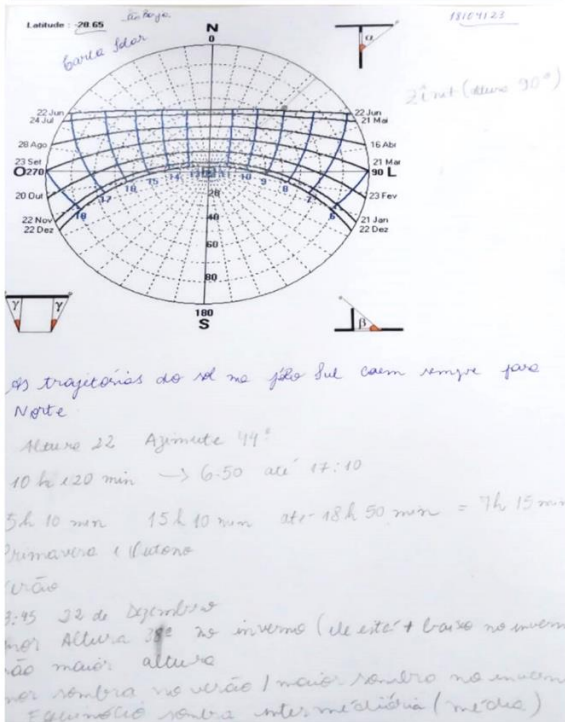 Latitude : -28.65
São Borja
18/04/23
Carta Solar
N
0
α
Zênit (altura 90°)
22 Jun
24 Jul
28 Ago
23 Set
O 270
20 Out
22 Nov
22 Dez
22 Jun
21 Mai
16 Abr
21 Mar
90 L
23 Fev
21 Jan
22 Dez
18 17 16 15 14 13 11 10 9 8 7 6
20
40
60
80
180
S
γ γ
β
As trajetórias do sol no pólo Sul caem sempre para
Norte.
Altura 22 Azimute 49°
10 h e 20 min → 6:50 até 17:10
5h 10 min 15 h 10 min até 18 h 50 min = 7h 15 min
Primavera e Outono
Verão
3:45 22 de Dezembro
Altura 38° no inverno (ele está + baixo no
maior altura
sombra no verão / maior sombra no
Equinócio sombra intermediária (média)